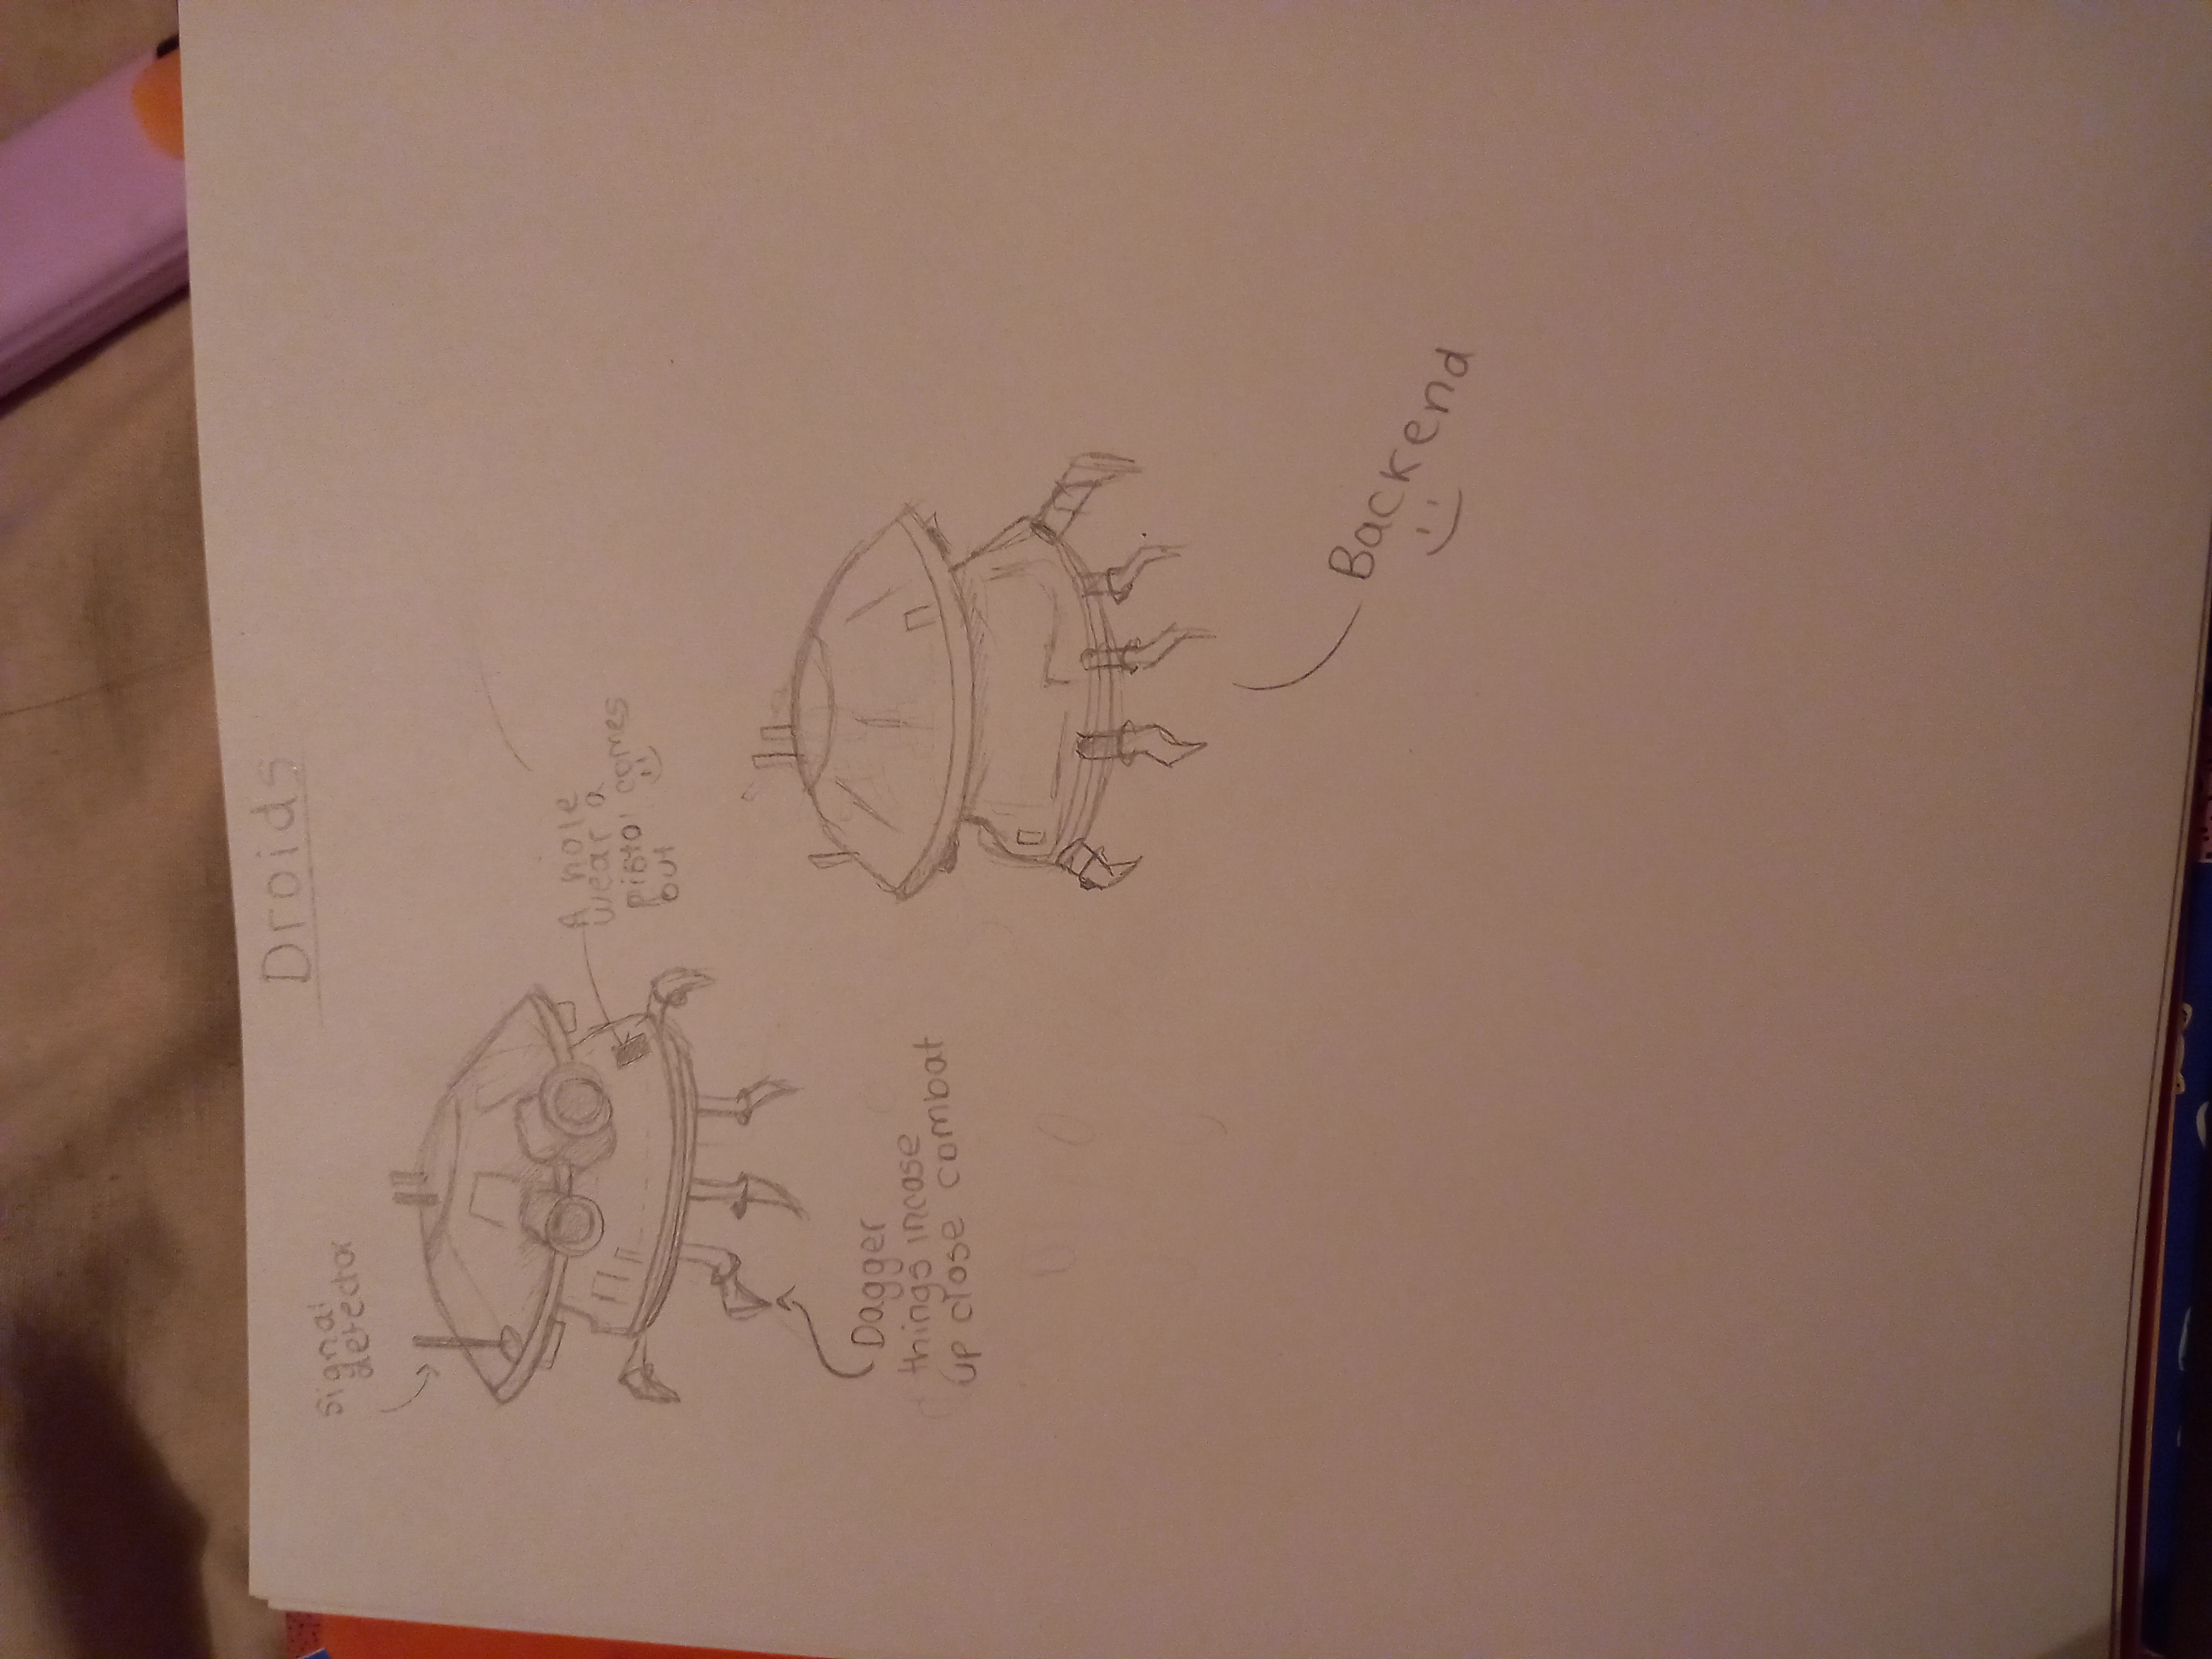 Droids
Signal
detector
A hole
wear a
pistol comes
out
Dagger
things incase
up close combat
Backend